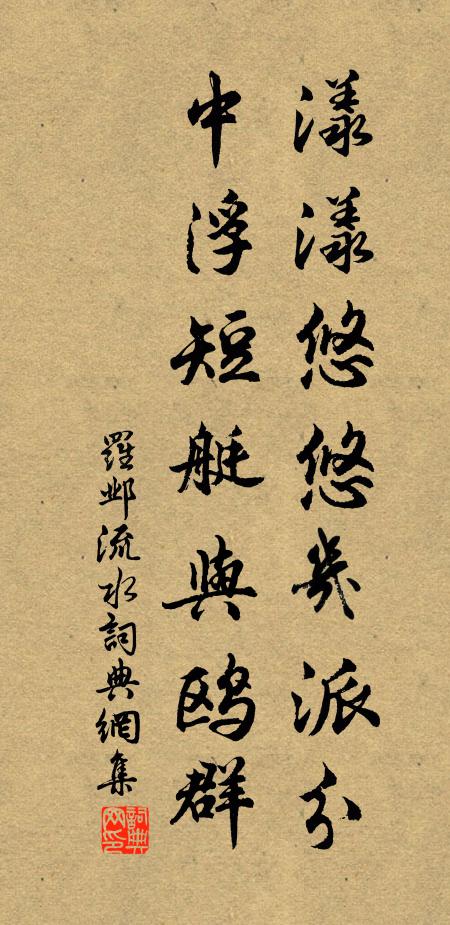 漾漾悠悠幾派分
中浮短艇與鷗群
羅鄴流水詞典網集
詞典網印